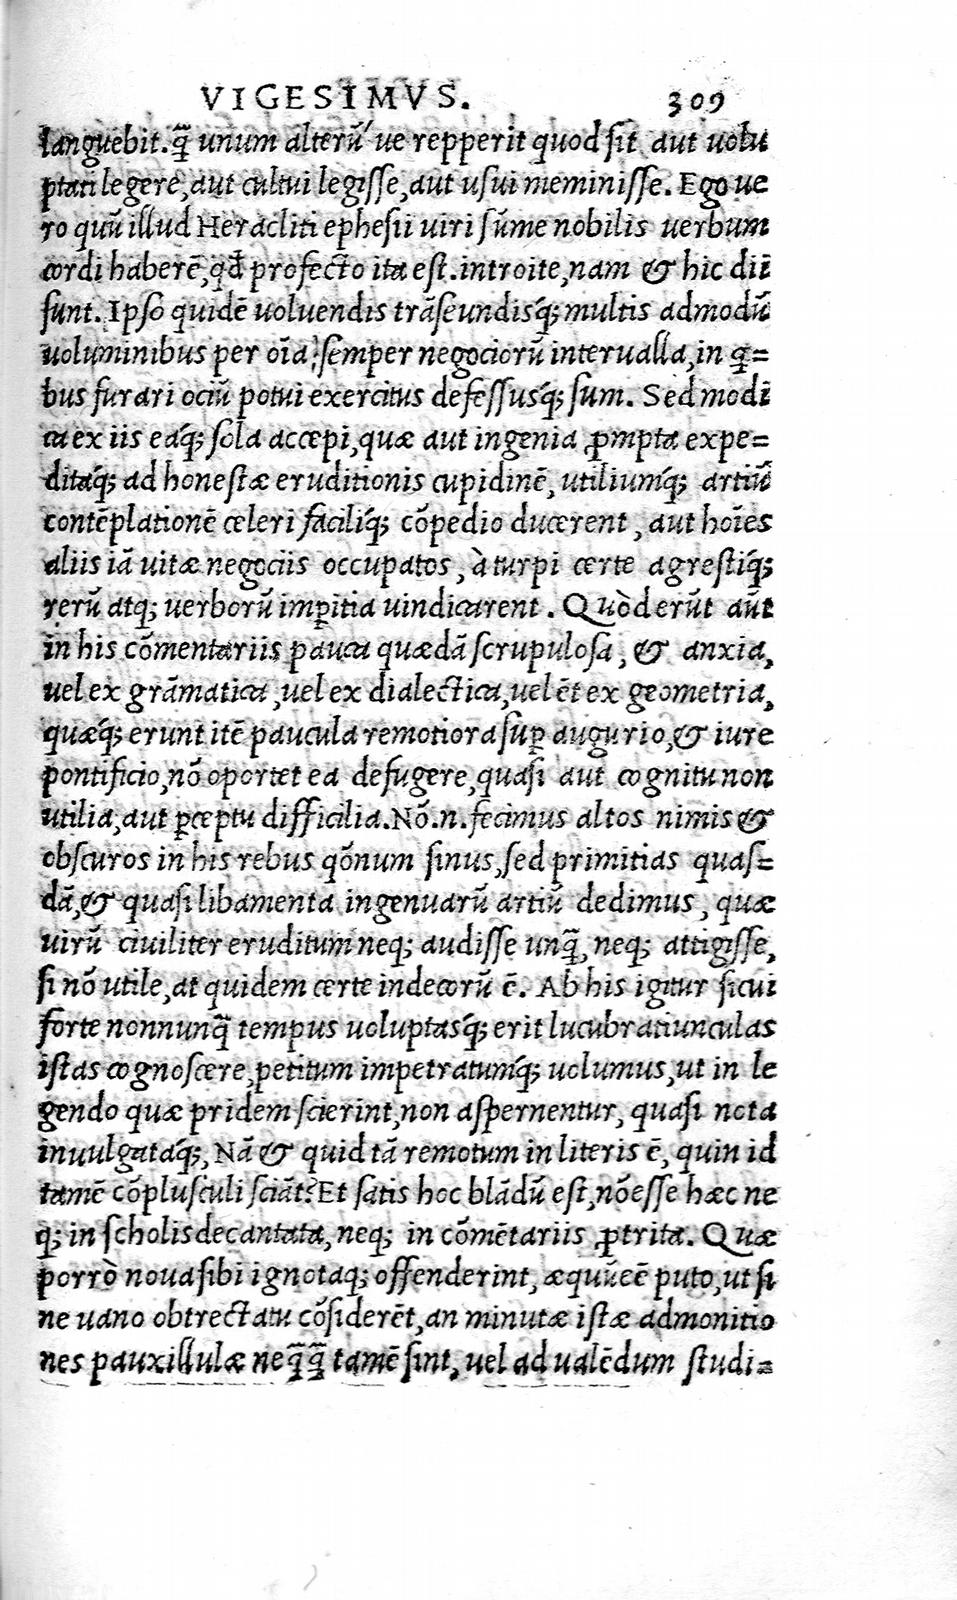 VIGESIMVS. 309
languebit. q̃ unum alterũ ue repperit quod sit aut uolu
ptati legere, aut cultui legisse, aut usui meminisse. Ego ue
ro quũ illud Heracliti ephesii uiri sũme nobilis uerbum
cordi haberẽ, qđ profecto ita est. introite, nam & hic dii
sunt. Ipso quidẽ uoluendis trãseundisq́; multis admodũ
uoluminibus per oĩa semper negociorũ interualla, in q̃=
bus furari ociũ potui exercitus defessusq́; sum. Sed modi
ca ex iis eaq́; sola accepi, quæ aut ingenia ꝓmpta expe=
ditaq́; ad honestæ eruditionis cupidinẽ, utiliumq́; artiũ
contẽplationẽ celeri faciliq́; cõpedio ducerent, aut hoĩes
aliis iã uitæ negociis occupatos, à turpi certe agrestiq́;
rerũ atq; uerborũ imꝑitia uindicarent. Quòd erũt aũt
in his cõmentariis pauca quædã scrupulosa, & anxia,
uel ex grãmatica, uel ex dialectica, uel ẽt ex geometria,
quæq́; erunt itẽ paucula remotiora suꝑ augurio, & iure
pontificio, nõ oportet ea defugere, quasi aut cognitu non
utilia, aut ꝑceptu difficilia. Nõ .n. fecimus altos nimis &
obscuros in his rebus qõnum sinus, sed primitias quas=
dã, & quasi libamenta ingenuarũ artiũ dedimus, quæ
uirũ ciuiliter eruditum neq; audisse unq̃, neq; attigisse,
si nõ utile, at quidem certe indecorũ ẽ. Ab his igitur sicui
forte nonnunq̃ tempus uoluptasq́; erit lucubratiunculas
istas cognoscere, petitum impetratumq́; uolumus, ut in le
gendo quæ pridem scierint, non aspernentur, quasi nota
inuulgataq́;, Nã & quid tã remotum in literis ẽ, quin id
tamẽ cõplusculi sciãt? Et satis hoc blãdũ est, nõ esse hæc ne
q; in scholis decantata, neq; in cõmẽtariis ꝓtrita. Quæ
porrò noua sibi ignotaq; offenderint, æquũ eẽ puto, ut si
ne uano obtrectatu cõsiderẽt, an minutæ istæ admonitio
nes pauxillulæ neq̃q̃ tamẽ sint, uel ad ualẽdum studi=